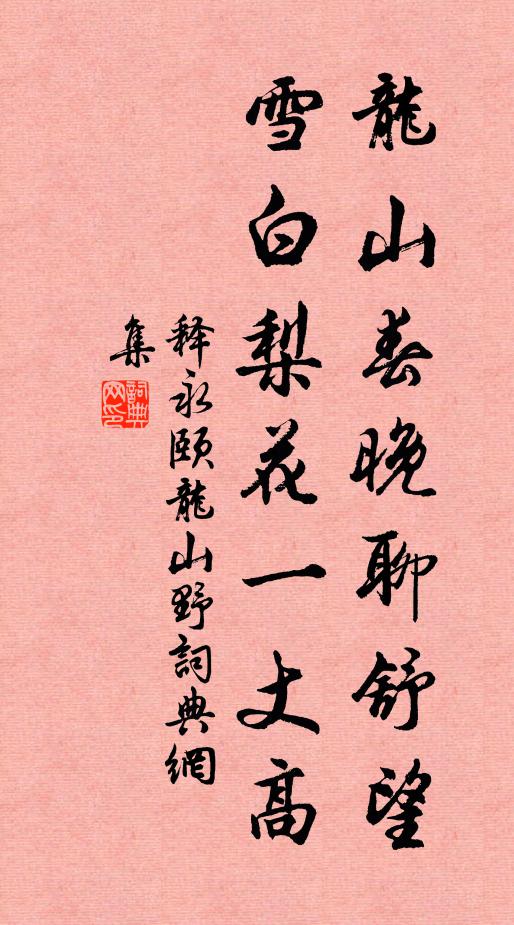 龍山春晚聊舒望
雪白梨花一丈高
释永頤龍山野詞典網
集
詞典
网印